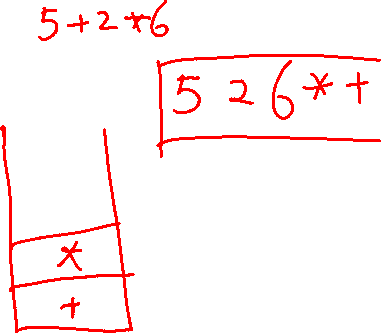 5+2*6
5 2 6 * +
*
+